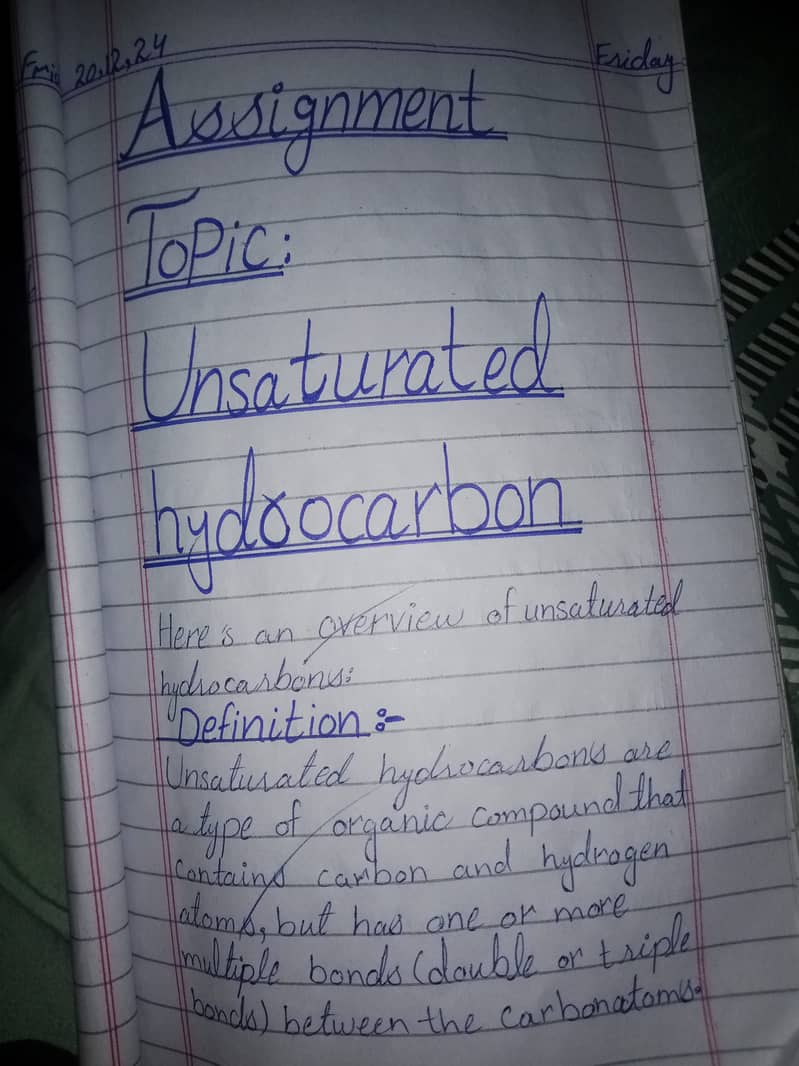 20.12.24 Friday
Assignment
Topic:
Unsaturated
hydrocarbon
Here's an overview of unsaturated
hydrocarbons:
Definition:-
Unsaturated hydrocarbons are
a type of organic compound that
contains carbon and hydrogen
atoms, but has one or more
multiple bonds (double or triple
bonds) between the carbon atoms.